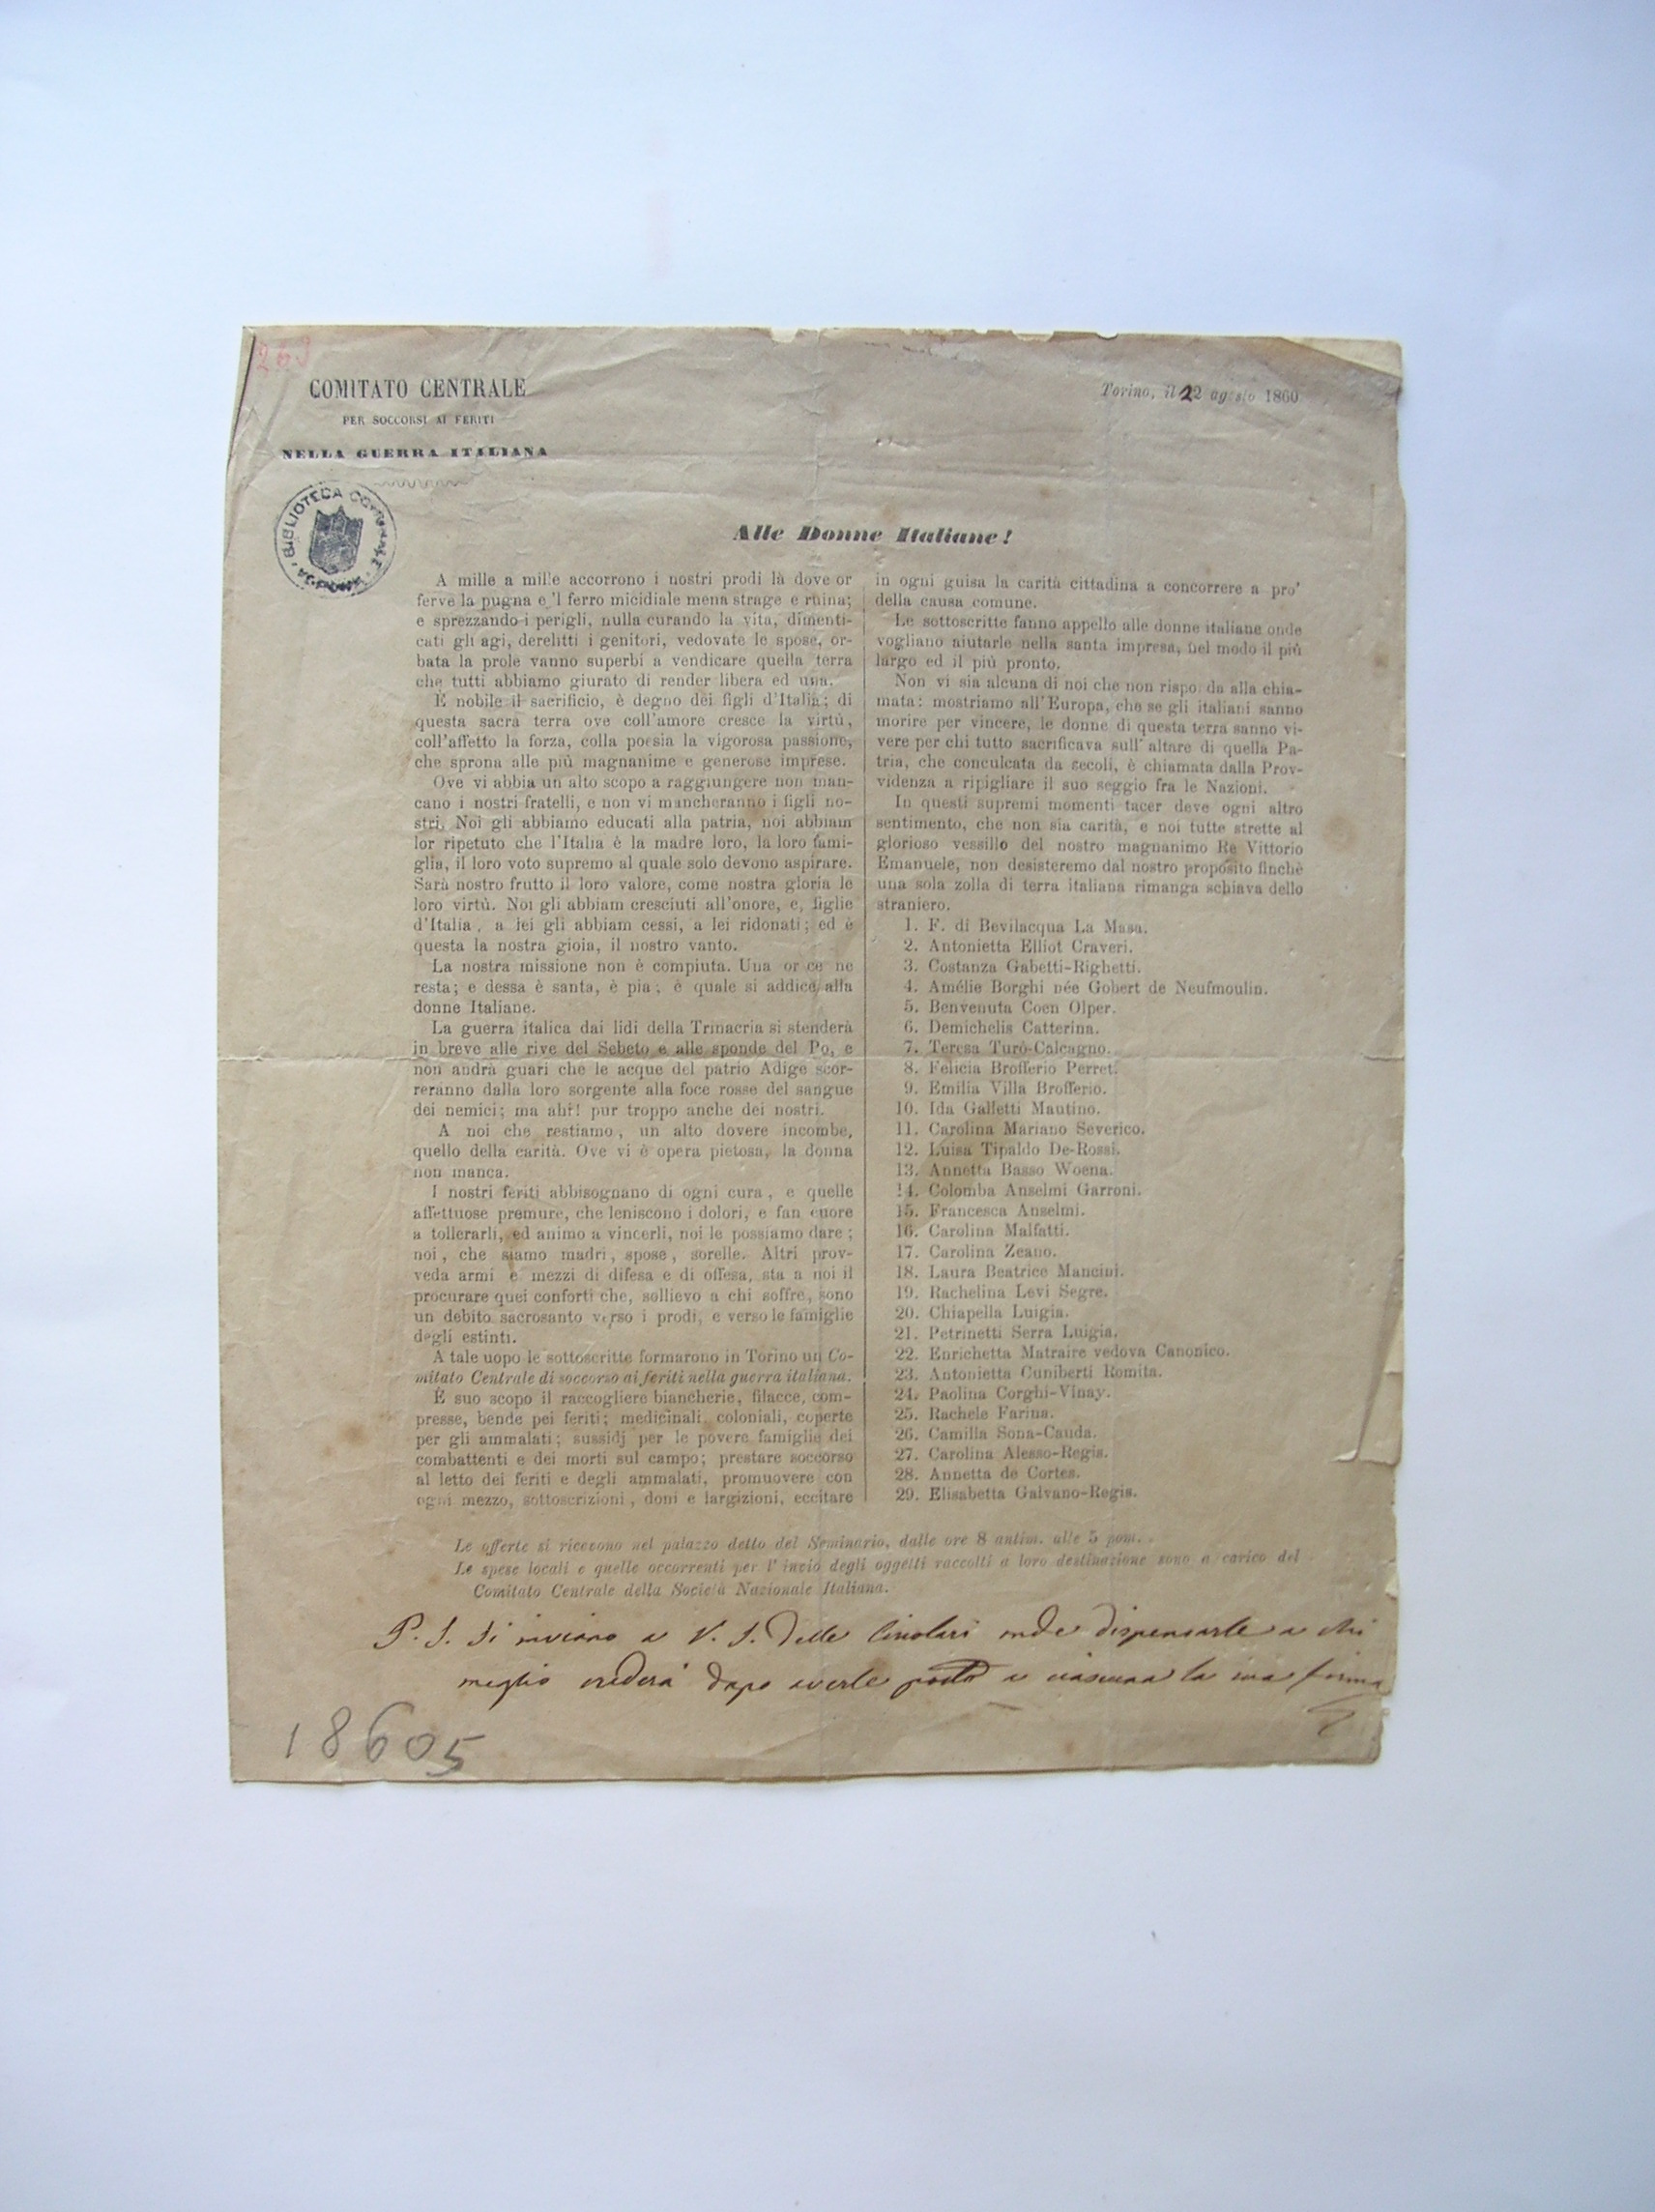 263
COMITATO CENTRALE
PER SOCCORSI AI FERITI
NELLA GUERRA ITALIANA
Torino, il 22 agosto 1860
BIBLIOTECA COMUNALE
Alle Donne Italiane!
A mille a mille accorrono i nostri prodi là dove or
ferve la pugna e 'l ferro micidiale mena strage e ruina;
e sprezzando i perigli, nulla curando la vita, dimenti-
cati gli agi, derelitti i genitori, vedovate le spose, or-
bata la prole vanno superbi a vendicare quella terra
che tutti abbiamo giurato di render libera ed una.
È nobile il sacrificio, è degno dei figli d'Italia; di
questa sacra terra ove coll'amore cresce la virtù,
coll'affetto la forza, colla poesia la vigorosa passione,
che sprona alle più magnanime e generose imprese.
Ove vi abbia un alto scopo a raggiungere non man-
cano i nostri fratelli, e non vi mancheranno i figli no-
stri. Noi gli abbiamo educati alla patria, noi abbiam
lor ripetuto che l'Italia è la madre loro, la loro fami-
glia, il loro voto supremo al quale solo devono aspirare.
Sarà nostro frutto il loro valore, come nostra gloria le
loro virtù. Noi gli abbiam cresciuti all'onore, e, figlie
d'Italia, a lei gli abbiam cessi, a lei ridonati; ed è
questa la nostra gioia, il nostro vanto.
La nostra missione non è compiuta. Una or ce ne
resta; e dessa è santa, è pia; è quale si addice alla
donne Italiane.
La guerra italica dai lidi della Trinacria si stenderà
in breve alle rive del Sebeto e alle sponde del Po, e
non andrà guari che le acque del patrio Adige scor-
reranno dalla loro sorgente alla foce rosse del sangue
dei nemici; ma ahi! pur troppo anche dei nostri.
A noi che restiamo, un alto dovere incombe,
quello della carità. Ove vi è opera pietosa, la donna
non manca.
I nostri feriti abbisognano di ogni cura, e quelle
affettuose premure, che leniscono i dolori, e fan cuore
a tollerarli, ed animo a vincerli, noi le possiamo dare;
noi, che siamo madri, spose, sorelle. Altri prov-
veda armi e mezzi di difesa e di offesa, sta a noi il
procurare quei conforti che, sollievo a chi soffre, sono
un debito sacrosanto verso i prodi, e verso le famiglie
degli estinti.
A tale uopo le sottoscritte formarono in Torino un Co-
mitato Centrale di soccorso ai feriti nella guerra italiana.
È suo scopo il raccogliere biancherie, filacce, com-
presse, bende pei feriti; medicinali, coloniali, coperte
per gli ammalati; sussidj per le povere famiglie dei
combattenti e dei morti sul campo; prestare soccorso
al letto dei feriti e degli ammalati, promuovere con
ogni mezzo, sottoscrizioni, doni e largizioni, eccitare
in ogni guisa la carità cittadina a concorrere a pro'
della causa comune.
Le sottoscritte fanno appello alle donne italiane onde
vogliano aiutarle nella santa impresa, nel modo il più
largo ed il più pronto.
Non vi sia alcuna di noi che non rispo da alla chia-
mata: mostriamo all'Europa, che se gli italiani sanno
morire per vincere, le donne di questa terra sanno vi-
vere per chi tutto sacrificava sull' altare di quella Pa-
tria, che conculcata da secoli, è chiamata dalla Prov-
videnza a ripigliare il suo seggio fra le Nazioni.
In questi supremi momenti tacer deve ogni altro
sentimento, che non sia carità, e noi tutte strette al
glorioso vessillo del nostro magnanimo Re Vittorio
Emanuele, non desisteremo dal nostro proposito finchè
una sola zolla di terra italiana rimanga schiava dello
straniero.
1. F. di Bevilacqua La Masa.
2. Antonietta Elliot Craveri.
3. Costanza Gabetti-Righetti.
4. Amélie Borghi née Gobert de Neufmoulin.
5. Benvenuta Coen Olper.
6. Demichelis Catterina.
7. Teresa Turò-Calcagno.
8. Felicia Brofferio Perret.
9. Emilia Villa Brofferio.
10. Ida Galletti Mautino.
11. Carolina Mariano Severico.
12. Luisa Tipaldo De-Rossi.
13. Annetta Basso Woena.
14. Colomba Anselmi Garroni.
15. Francesca Anselmi.
16. Carolina Malfatti.
17. Carolina Zeano.
18. Laura Beatrice Mancini.
19. Rachelina Levi Segre.
20. Chiapella Luigia.
21. Petrinetti Serra Luigia.
22. Enrichetta Matraire vedova Canonico.
23. Antonietta Cuniberti Romita.
24. Paolina Corghi-Vinay.
25. Rachele Farina.
26. Camilla Sona-Cauda.
27. Carolina Alesso-Regis.
28. Annetta de Cortes.
29. Elisabetta Galvano-Regis.
Le offerte si ricevono nel palazzo detto del Seminario, dalle ore 8 antim. alle 5 pom.
Le spese locali e quelle occorrenti per l' invio degli oggetti raccolti a loro destinazione sono a carico del
Comitato Centrale della Società Nazionale Italiana.
P. S. Si inviano a V. S. delle Circolari onde dispensarle a chi
meglio crederà dopo averle posto a ciascuna la sua firma
18605